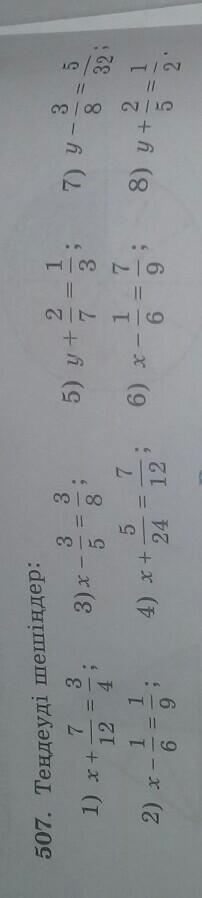 507. Теңдеуді шешіңдер:
1) x + 7/12 = 3/4; 3) x − 3/5 = 3/8; 5) y + 2/7 = 1/3; 7) y − 3/8 = 5/32;
2) x − 1/6 = 1/9; 4) x + 5/24 = 7/12; 6) x − 1/6 = 7/9; 8) y + 2/5 = 1/2.